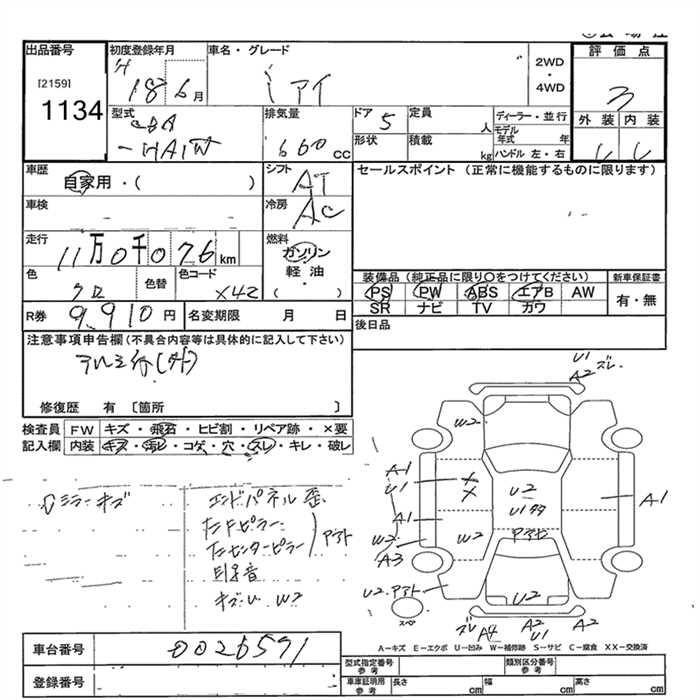 出品番号
[2159]
1134
初度登録年月
H 18 6 月
車名・グレード
i アイ
2WD
・
4WD
評価点
3
外装 内装
型式
CBA
-HA1W
排気量
660 cc
ドア
5
形状
定員
人
積載
kg
ディーラー・並行
モデル
年式 年
ハンドル 左・右
車歴
自家用・( )
シフト
AT
セールスポイント (正常に機能するものに限ります)
車検
冷房
AC
走行
11万0千076 km
燃料
ガソリン
軽油
・( )
色
クロ
色替
色コード
X42
装備品 (純正品に限り〇をつけてください)
新車保証書
PS PW ABS エアB AW
SR ナビ TV カワ
有・無
R券
9,910 円
名変期限 月 日
後日品
注意事項申告欄 (不具合内容等は具体的に記入して下さい)
修復歴 有 〔箇所 〕
検査員 FW キズ・飛石・ヒビ割・リペア跡・×要
記入欄 内装 キズ・汚レ・コゲ・穴・スレ・キレ・破レ
ミラーキズ
エンドパネル歪
左Fピラー
左センターピラー
アアト
引き音
キズU W2
U1
A2
ズレ
W2
A1
U1
A1
W2
A3
X
X
U2
U1多
アアビ
W2
A1
U2 アアト
U2
スペア
ズレ
A4
A2
U1
A2
A−キズ E−エクボ U−凹み W−補修跡 S−サビ C−腐食 XX−交換済
車台番号
0026591
登録番号
型式指定番号
参考
類別区分番号
参考
車庫証明用
参考
長さ cm
幅 cm
高さ cm